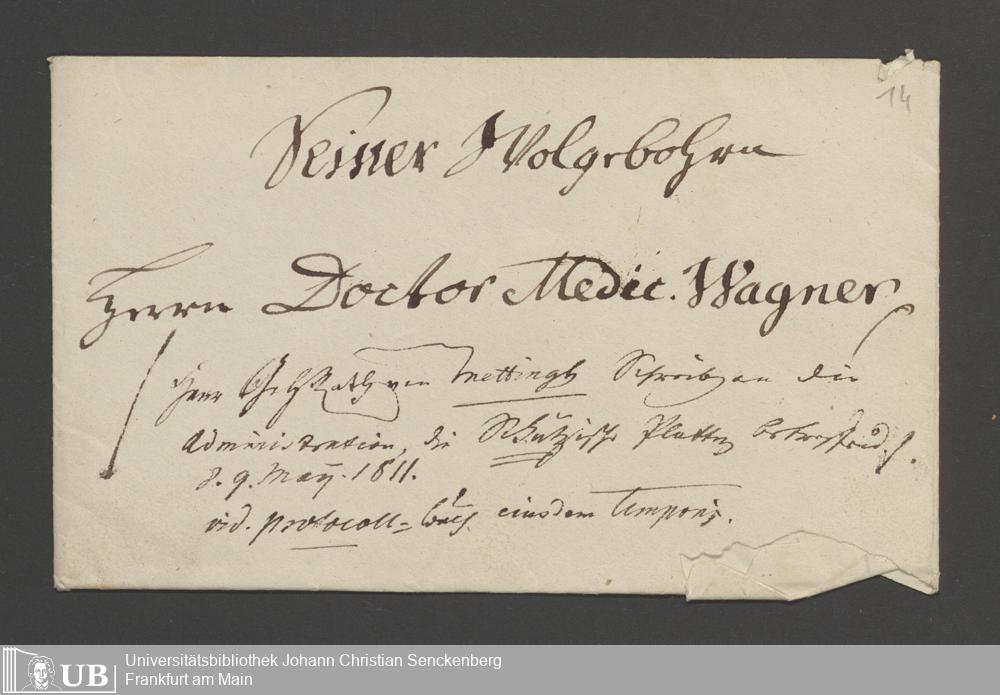 14
Seiner Wolgebohrn
Herrn Doctor Medic. Wagner
Herr GehRath von Mettingh Schreiben an die
Administration, die Schützische Platten betreffend.
d. 9. May. 1811.
vid. protocoll-buch eiusdem Temporis.
UB
Universitätsbibliothek Johann Christian Senckenberg
Frankfurt am Main